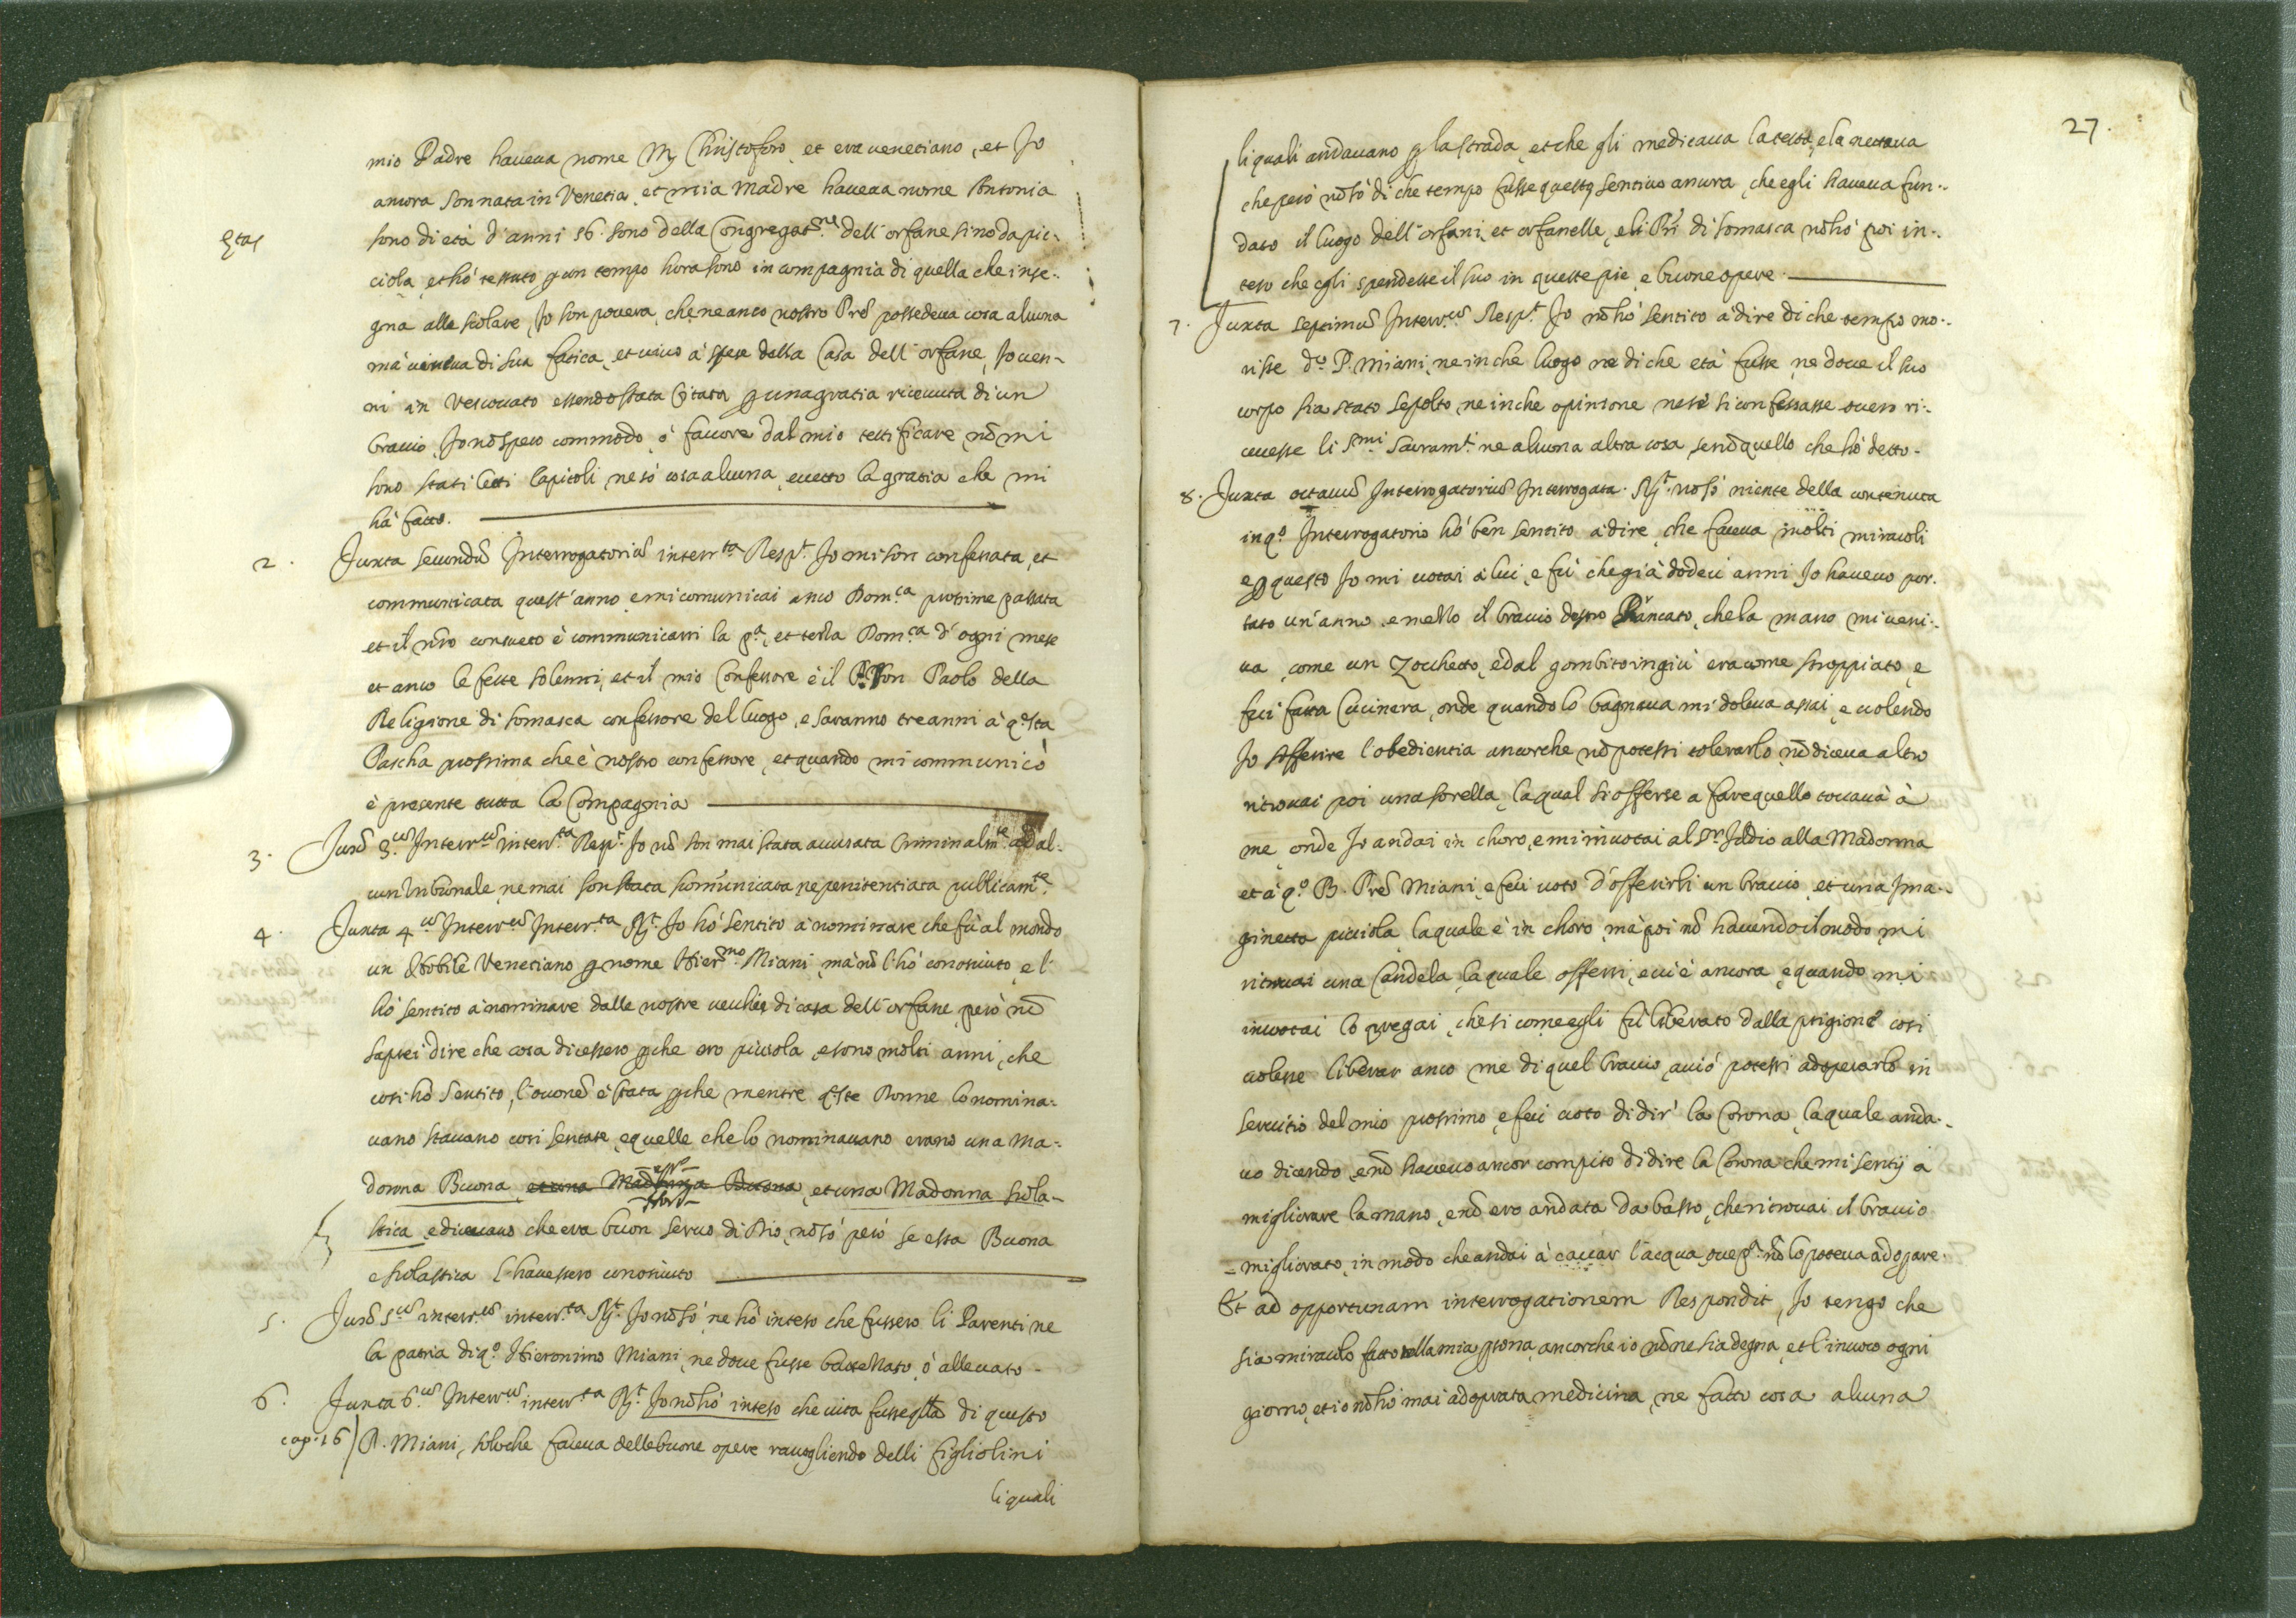 mio Padre haveva nome M. Christoforo, et era venetiano, et Jo
ancora son nata in Venetia, et mia Madre haveva nome Antonia
Ętas
sono di età d'anni 56. sono della Congregat.ne dell'orfane sino da pic-
ciola, et hò tessuto p un tempo hora sono in compagnia di quella che inse-
gna alle scolare, Jo son povera, che ne anco nostro Prē possedeva cosa alcuna
mà viveva di sua fatica, et vivo à spese della Casa dell'orfane, Jo ven-
ni in Vescovato essendo stata citata p una gratia ricevuta di un
braccio, Jo nō spero commodo ò favore dal mio testificare nō mi
sono stati letti Capitoli, ne sò cosa alcuna, eccetto la gratia che mi
hà fatto.
2. Juxta secundū Interrogatoriū interr.ta Resp.t Jo mi son confessata, et
communicata quest'anno, e mi comunicai anco Dom.ca prossime passata
et il nro consueto è communicarsi la p.a, et terza Dom.ca d'ogni mese
et anco le feste solenni, et il mio Confessore è il P. Don Paolo della
Religione di Somasca confessore del luogo, e saranno tre anni à q.sta
Pascha prossima che è nostro confessore, et quando mi communicò
è presente tutta la Compagnia
3. Jux̄ 3.ū Interr.ū interr.ta Resp.t Jo nō son mai stata accusata Criminalm.te ad al-
cun Tribunale, ne mai son stata scom̄unicata ne penitentiata publicam.te
4. Juxta 4.ū Interr.ū Interr.ta R.t Jo hò sentito à nominare che fù al mondo
un Nobile Venetiano p nome Hier.mo Miani, mà nō l'hò conosciuto, e l'
hò sentito à nominare dalle nostre vecchie di casa dell'orfane, però nō
saprei dire che cosa dicessero pche ero picciola, e sono molti anni, che
cosi hò sentito, l'occonē è stata pche mentre q.ste Donne lo nomina-
vano stavano cosi sentate, e quelle che lo nominavano erano una Ma-
donna Buona, et una Madonna Buona, et una Madonna Scola-
stica, e dicevano che era buon servo di Dio, nō sò però se essa Buona
e scolastica l'havessero conosciuto
5. Jux̄ 5.ū interr.ū interr.ta R.t Jo nō sò, ne hò inteso che fussero li Parenti ne
la patria di q.o Hieronimo Miani, ne dove fusse battezzato, ò allevato -
6. Juxta 6.ū Interr.ū interr.ta R.t Jo nō hò inteso che vita fusse qlla di questo
cap. 16) P. Miani, solo che faceva delle buone opere raccogliendo delli figliolini
li quali
27.
li quali andavano p la strada, et che gli medicava la testa, e la nettava
che però nō sò di che tempo fusse questo, sentivo ancora, che egli haveva fun-
dato il luogo dell'orfani, et orfanelle, e li Pri di Somasca nō hò poi in-
teso che egli spendesse il suo in queste pie, e buone opere.
7. Juxta septimū Interr.ū Resp.t Jo nō hò sentito à dire di che tempo mo-
risse d.o P. Miani, ne in che luogo ne di che età fusse, ne dove il suo
corpo sia stato sepolto, ne in che opinione ne se si confessasse overo ri-
cevesse li S.mi Sacram.ti ne alcuna altra cosa, se nō quello che hò detto.
8. Juxta octavū Interrogatoriū Interrogata. R.t nō sò niente della contenuta
in q.o Interrogatorio hò ben sentito à dire, che faceva molti miracoli
e p questo Jo mi votai à lui, e fù che già dodeci anni Jo havevo por-
tato un'anno, e mezzo il braccio destro, che la mano mi veni-
va, come un Zocchetto, e dal gombito in giù era come stroppiato, e
fui fatta Cucinera, onde quando lo bagnava mi doleva assai, e volendo
Jo soffrire l'obedientia ancorche nō potessi tolerarlo, nō diceva altro
ritrovai poi una sorella, la qual si offerse a fare quello toccava à
me, onde Jo andai in choro, e mi invocai al S.r Iddio alla Madonna
et à q.o B. Prē Miani, e feci voto d'offerirli un braccio, et una Ima-
ginetta picciola, la quale è in choro, mà poi nō havendo il modo mi
ritrovai una Candela, la quale offersi, e vi è ancora, e quando mi
invocai lo pregai, che si come egli fù liberato dalla prigione cosi
volesse liberar anco me di quel braccio, acciò potessi adoperarlo in
servitio del mio prossimo, e feci voto di dir' la Corona, la quale anda-
vo dicendo, e nō havevo ancor compito di dire la Corona che mi sentij à
migliorare la mano, e nō ero andata da basso, che ritrovai il braccio
migliorato, in modo che andai à cavar l'acqua, ove p.a nō lo poteva adopare.
Et ad opportunam interrogationem Respondit, Jo tengo che
sia miracolo fatto nella mia psona, ancorche io nō ne sia degna, et l'invoco ogni
giorno, et io nō hò mai adoprata medicina, ne fatto cosa alcuna